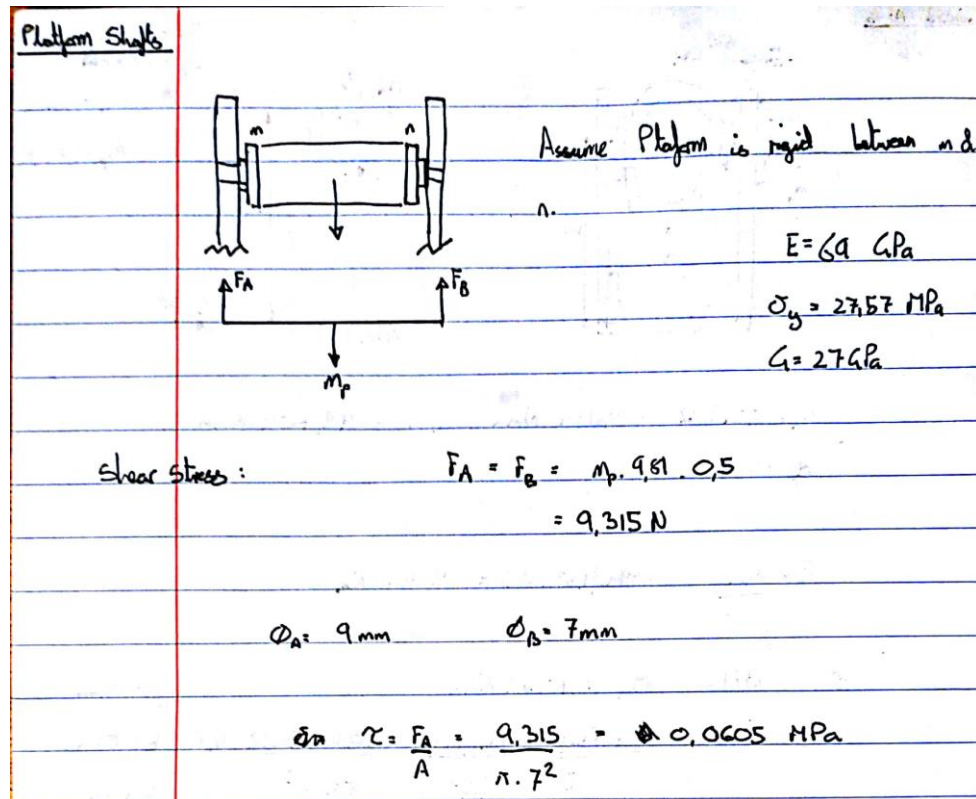 Platform Shafts
m n
Assume Platform is rigid between m &
n.
E = 69 GPa
F_A F_B
σ_y = 27,57 MPa
G = 27 GPa
m_p
Shear Stress : F_A = F_B = m_p . 9,81 . 0,5
= 9,315 N
Ø_A = 9 mm Ø_B = 7 mm
τ = F_A / A = 9,315 / π . 7² = 0,0605 MPa